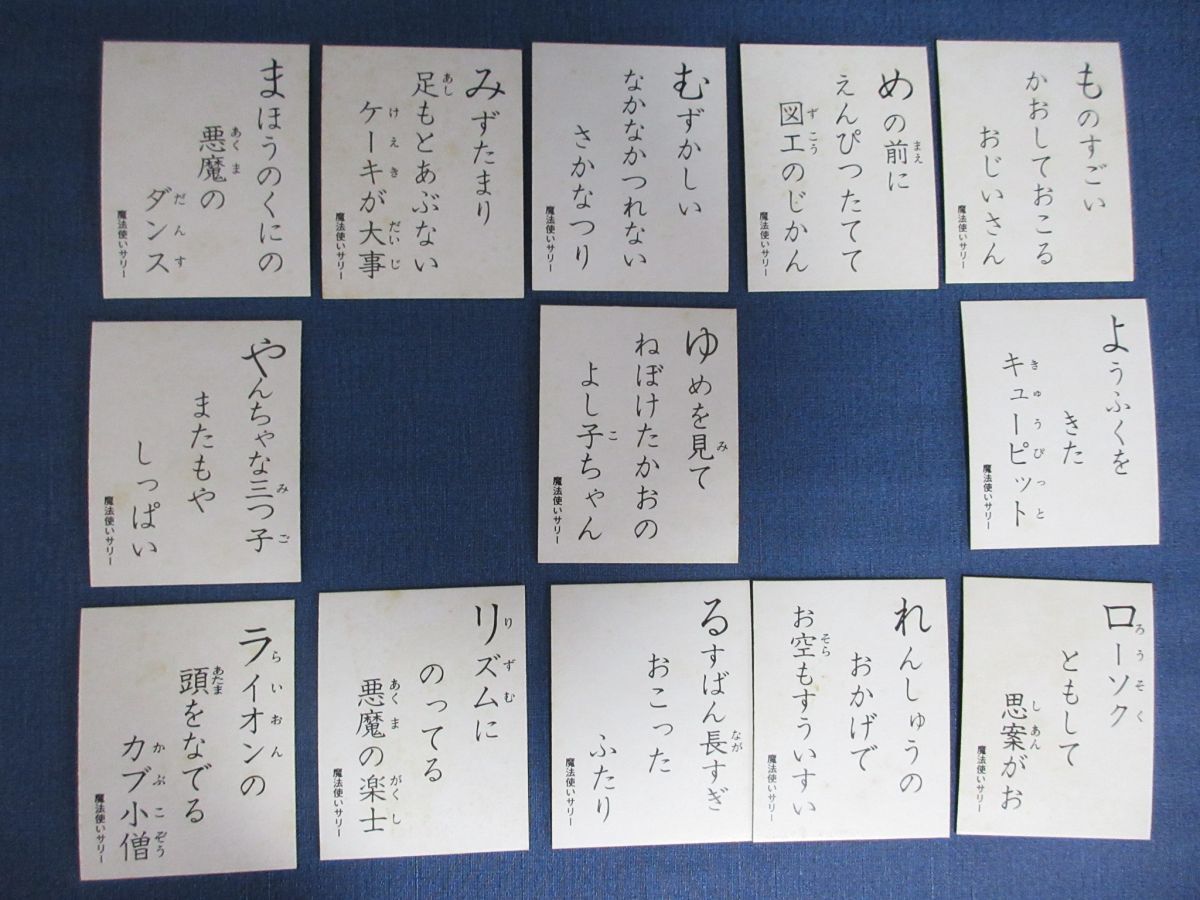 まほうのくにの
悪魔の
ダンス
魔法使いサリー
みずたまり
足もとあぶない
ケーキが大事
魔法使いサリー
むずかしい
なかなかつれない
さかなつり
魔法使いサリー
めの前に
えんぴつたてて
図工のじかん
魔法使いサリー
ものすごい
かおしておこる
おじいさん
魔法使いサリー
やんちゃな三つ子
またもや
しっぱい
魔法使いサリー
ゆめを見て
ねぼけたかおの
よし子ちゃん
魔法使いサリー
ようふくを
きた
キューピット
魔法使いサリー
ライオンの
頭をなでる
カブ小僧
魔法使いサリー
リズムに
のってる
悪魔の楽士
魔法使いサリー
るすばん長すぎ
おこった
ふたり
魔法使いサリー
れんしゅうの
おかげで
お空もすういすい
魔法使いサリー
ローソク
ともして
思案がお
魔法使いサリー